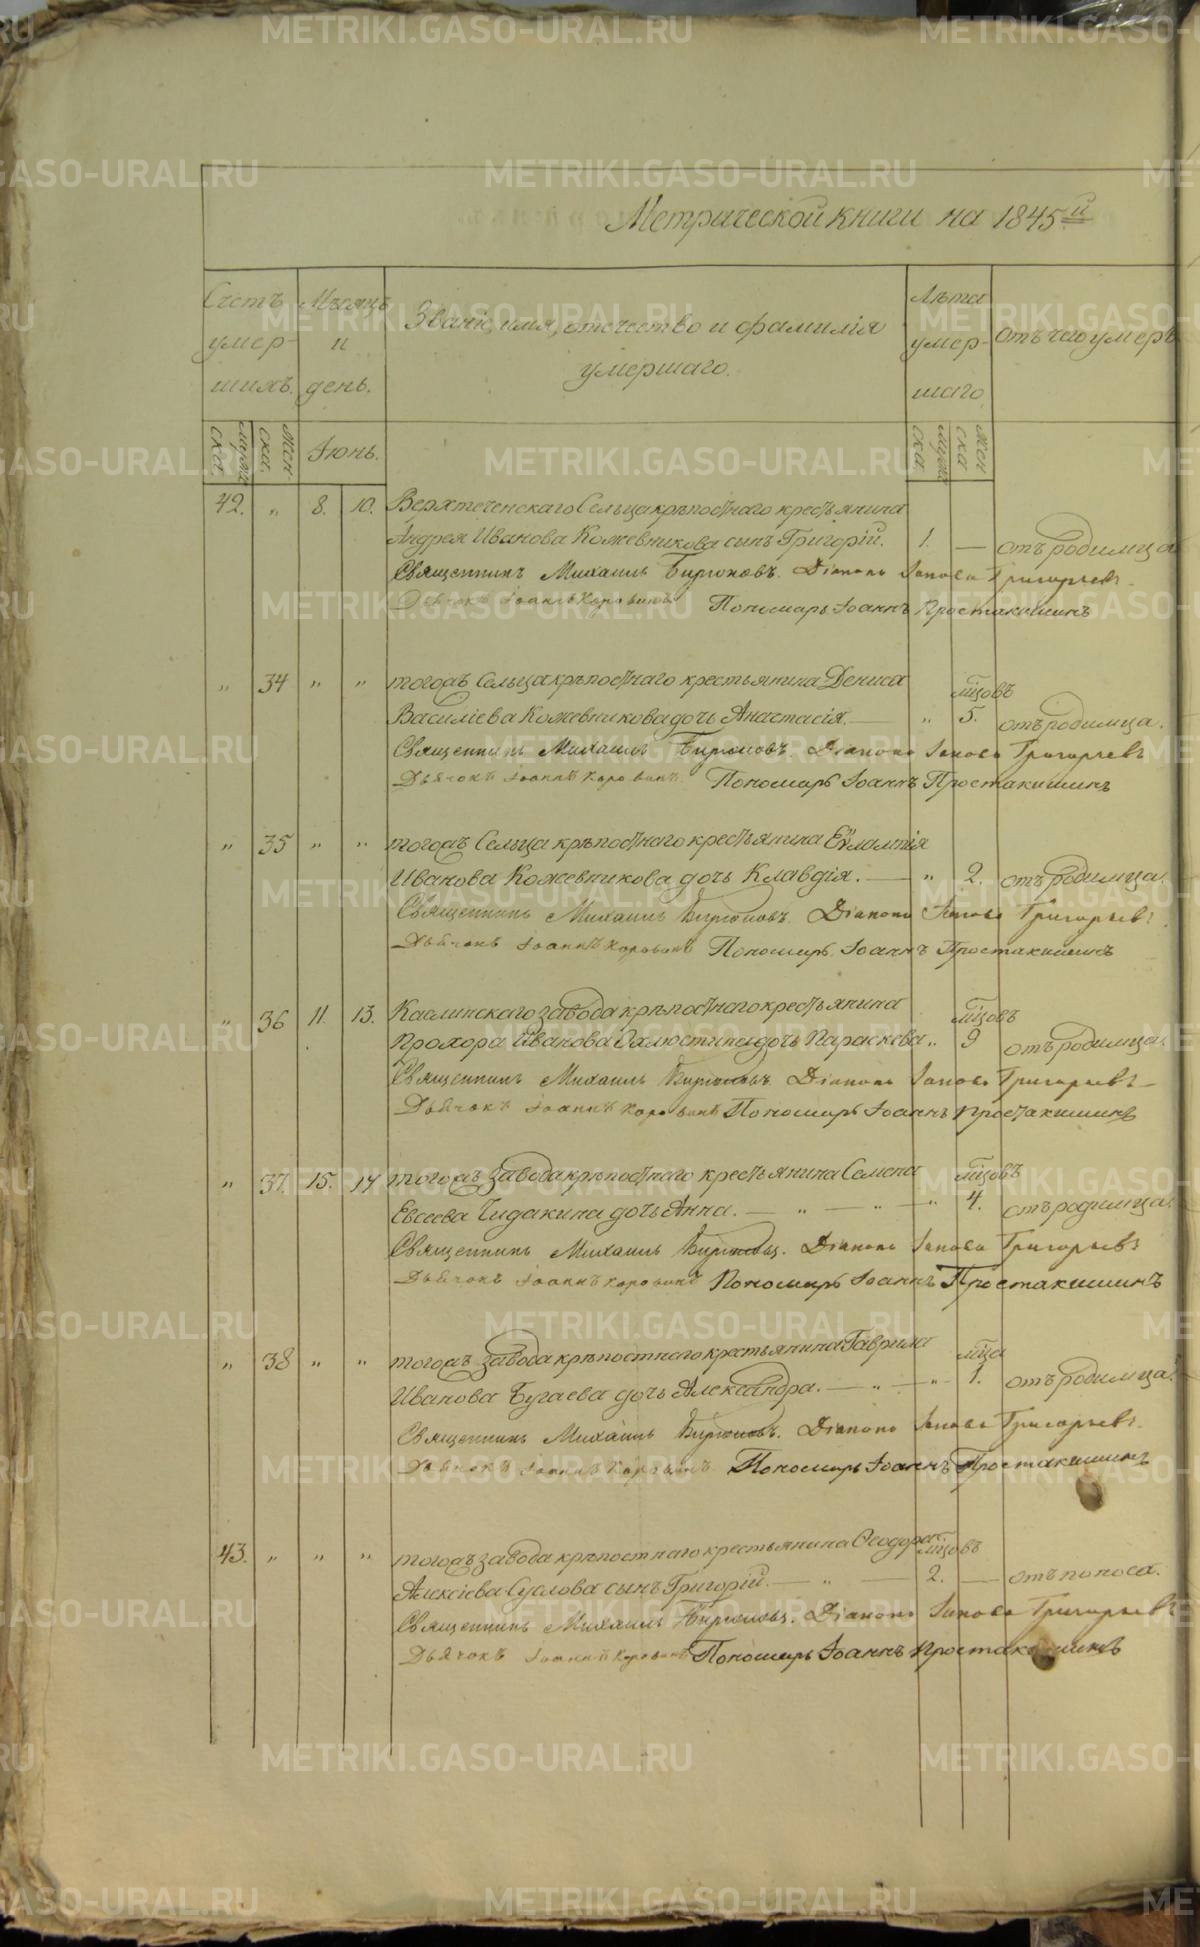 Метрической книги на 1845й
Счетъ умер- шихъ.
Мѣсяцъ и день.
Званіе, имя, отечество и фамилія умершаго.
Лѣта умер- шаго
отъ чего умеръ
мужеска.
женска.
Іюнь.
мужеска.
женска
42. „ 8. 10. Верхтеченскаго Сельца крѣпостнаго крестьянина
Андрея Иванова Кожевникова сынъ Григорій. 1. — отъ родимца
Священникъ Михаилъ Бирюковъ. Діаконъ Іаковъ Григорьевъ.
Дьячокъ Іоаннъ Коровинъ Пономарь Іоаннъ Простакишинъ
„ 34 „ „ тогожъ Сельца крѣпостнаго крестьянина Дениса мцовъ
Василіева Кожевникова дочь Анастасія. — „ 5. отъ родимца.
Священникъ Михаилъ Бирюковъ. Діаконъ Іаковъ Григорьевъ
Дьячокъ Іоаннъ Коровинъ. Пономарь Іоаннъ Простакишинъ
„ 35 „ „ тогожъ Сельца крѣпостнаго крестьянина Евлампія
Иванова Кожевникова дочь Клавдія. — „ 2. отъ родимца.
Священникъ Михаилъ Бирюковъ. Діаконъ Іаковъ Григорьевъ.
Дьячокъ Іоаннъ Коровинъ Пономарь Іоаннъ Простакишинъ
„ 36 11. 13. Каслинскаго завода крѣпостнаго крестьянина мцовъ
Прохора Иванова Охлюстина дочь Параскева „ 9 отъ родимца.
Священникъ Михаилъ Бирюковъ. Діаконъ Іаковъ Григорьевъ
Дьячокъ Іоаннъ Коровинъ Пономарь Іоаннъ Простакишинъ
„ 37. 15. 17 тогожъ завода крѣпостнаго крестьянина Семена мцовъ
Евсеева Чидакина дочь Анна. — „ — „ — „ 4. отъ родимца.
Священникъ Михаилъ Бирюковъ. Діаконъ Іаковъ Григорьевъ
Дьячокъ Іоаннъ Коровинъ Пономарь Іоаннъ Простакишинъ
„ 38 „ „ тогожъ завода крѣпостнаго крестьянина Гаврила мца
Иванова Бугаева дочь Александра. — „ — „ 1. отъ родимца.
Священникъ Михаилъ Бирюковъ. Діаконъ Іаковъ Григорьевъ.
Дьячокъ Іоаннъ Коровинъ. Пономарь Іоаннъ Простакишинъ
43. „ „ „ тогожъ завода крѣпостнаго крестьянина Ѳеодора мцовъ
Алексіева Суслова сынъ Григорій. — „ — 2. — отъ поноса.
Священникъ Михаилъ Бирюковъ. Діаконъ Іаковъ Григорьевъ
Дьячокъ Іоаннъ Коровинъ Пономарь Іоаннъ Простакишинъ
METRIKI.GASO-URAL.RU